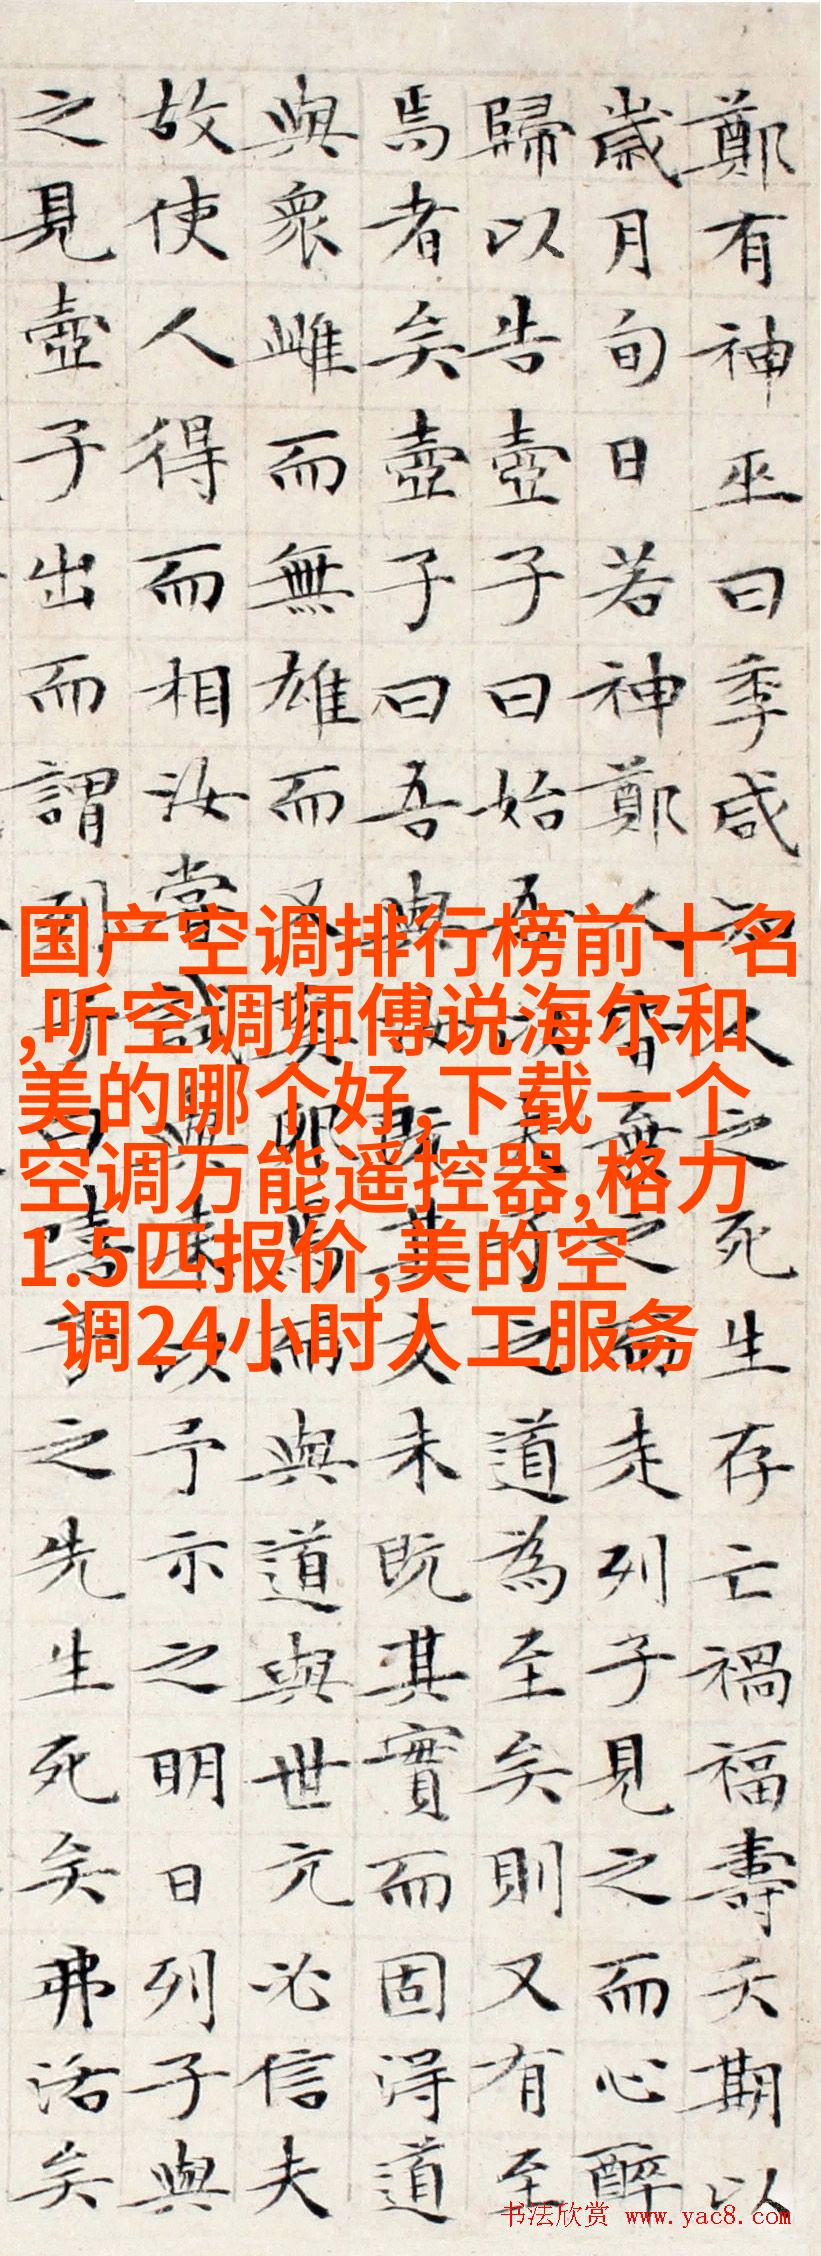 鄭有神巫曰季咸知人之死生存亡禍福壽夭期以
歲月旬日若神鄭人皆棄之而走列子見之而心醉
歸以告壺子曰始吾以夫子之道為至矣則又有至
焉者矣壺子曰吾與汝既其文未既其實而固得道
與眾雌而無雄而又奚卵焉而與道與世亢必信夫
故使人得而相汝嘗試與來以予示之明日列子與
之見壺子出而謂列子曰嘻子之先生死矣弗活矣
国产空调排行榜前十名
,听空调师傅说海尔和
美的哪个好,下载一个
空调万能遥控器,格力
1.5匹报价,美的空
调24小时人工服务
书法欣赏 www.yac8.com